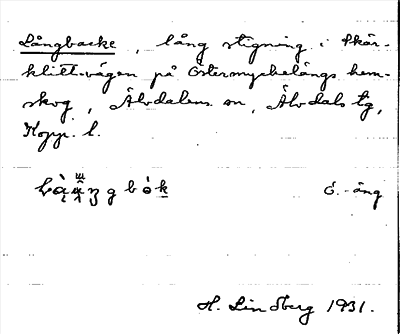 Långbacke, lång stigning i Skär-
klittvägen på Östermyckelängs hem-
skog, Älvdalens sn, Älvdals tg,
Kopp. l.
Ö.-äng
H. Lindberg 1931.